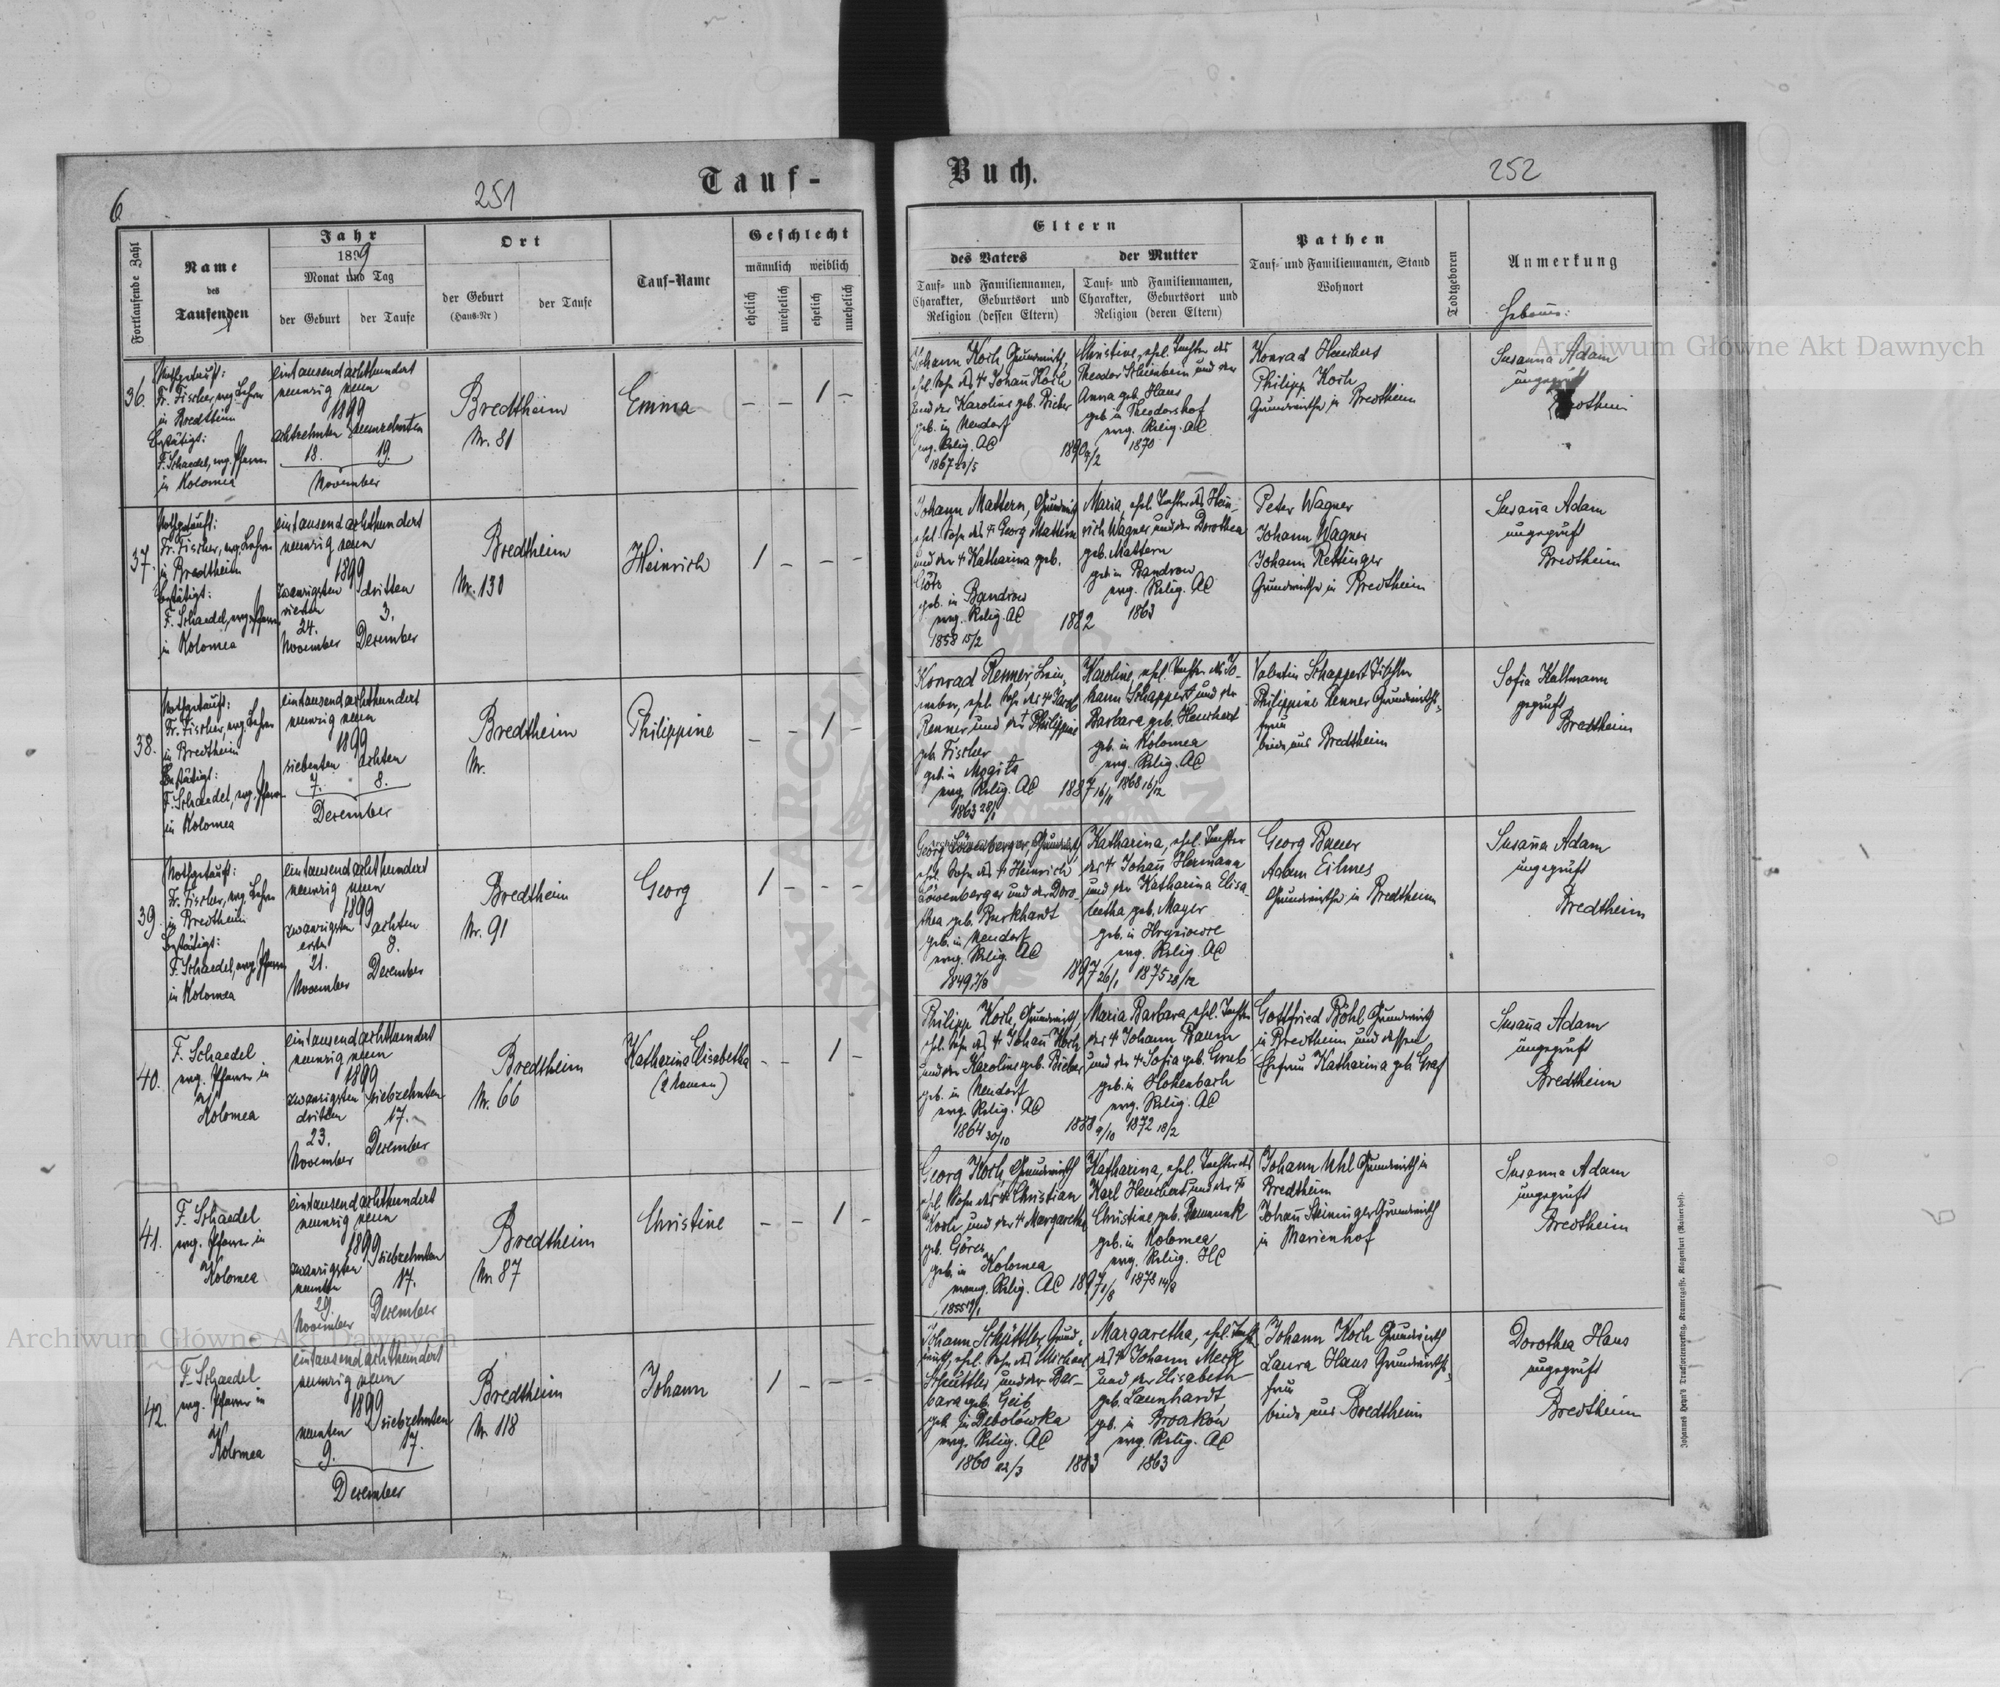 6
251
Tauf-
Fortlaufende Zahl
Name
des
Taufenden
Jahr
1899
Monat und Tag
der Geburt
der Taufe
Ort
der Geburt
(Haus-Nr)
der Taufe
Tauf-Name
Geschlecht
männlich
weiblich
ehelich
unehelich
ehelich
unehelich
36.
Nothgetauft:
Fr. Fischer, evg. Lehrer
in Bredtheim
Bestätigt:
F. Schaedel, evg. Pfarrer
in Kolomea
eintausendachthundert
neunzig neun
1899
achtzehnten
neunzehnten
18.
19.
November
Bredtheim
Nr. 81
Emma
— — 1 —
37.
Nothgetauft:
Fr. Fischer, evg. Lehrer
in Bredtheim
Bestätigt:
F. Schaedel, evg. Pfarrer
in Kolomea
eintausendachthundert
neunzig neun
1899
zwanzigsten
dritten
vierten
24.
3.
November
Dezember
Bredtheim
Nr. 130
Heinrich
1 — — —
38.
Nothgetauft:
Fr. Fischer, evg. Lehrer
in Bredtheim
Bestätigt:
F. Schaedel, evg. Pfarrer
in Kolomea
eintausendachthundert
neunzig neun
1899
siebenten
achten
7.
8.
Dezember
Bredtheim
Nr.
Philippine
— — 1 —
39.
Nothgetauft:
Fr. Fischer, evg. Lehrer
in Bredtheim
Bestätigt:
F. Schaedel, evg. Pfarrer
in Kolomea
eintausendachthundert
neunzig neun
1899
zwanzigsten
achten
ersten
8.
21.
November
Dezember
Bredtheim
Nr. 91
Georg
1 — — —
40.
F. Schaedel
evg. Pfarrer in
Kolomea
eintausendachthundert
neunzig neun
1899
zwanzigsten
siebzehnten
dritten
17.
23.
November
Dezember
Bredtheim
Nr. 66
Katharina Elisabetha
(2 Namen)
— — 1 —
41.
F. Schaedel
evg. Pfarrer in
Kolomea
eintausendachthundert
neunzig neun
1899
zwanzigsten
siebzehnten
neunten
17.
29.
November
Dezember
Bredtheim
Nr. 87
Christine
— — 1 —
42.
F. Schaedel
evg. Pfarrer in
Kolomea
eintausendachthundert
neunzig neun
1899
neunten
siebzehnten
9.
17.
Dezember
Bredtheim
Nr. 118
Johann
1 — — —
Buch.
252
Eltern
des Vaters
der Mutter
Tauf- und Familiennamen,
Charakter, Geburtsort und
Religion (dessen Eltern)
Tauf- und Familiennamen,
Charakter, Geburtsort und
Religion (deren Eltern)
Pathen
Tauf- und Familiennamen, Stand
Wohnort
Todtgeboren
Anmerkung
Hebamme:
Johann Koch, Grundwirth,
ehel. Sohn des + Johañ Koch
und der Karoline geb. Bieber
geb. in Neudorf
evg. Relig. AC
1867 23/5
1890 4/2
Christine, ehel. Tochter des
Theodor Schienbein und der
Anna geb. Haus
geb. in Theodorshof
evg. Relig. AC
1870
Konrad Heuchert
Philipp Koch
Grundwirthe in Bredtheim
Susanna Adam
ungeprüft
Bredtheim
Johann Mattern, Grundwirth
ehel. Sohn des + Georg Mattern
und der + Katharina geb.
Götz
geb. in Bandrow
evg. Relig. AC
1858 15/2
1882
Maria, ehel. Tochter des Hein-
rich Wagner und der Dorothea
geb. Mattern
geb. in Bandrow
evg. Relig. AC
1863
Peter Wagner
Johann Wagner
Johann Rettinger
Grundwirthe in Bredtheim
Susaña Adam
ungeprüft
Bredtheim
Konrad Renner, Lein-
weber, ehel. Sohn des + Jacob
Renner und der + Philippine
geb. Fischer
geb. in Mogiła
evg. Relig. AC
1863 28/1
1887 16/11
Karoline, ehel. Tochter des Jo-
hann Schappert und der
Barbara geb. Heuchert
geb. in Kolomea
evg. Relig. AC
1868 16/12
Valentin Schappert Tischler
Philippine Renner Grundwirths-
frau
beide aus Bredtheim
Sofia Kaltmann
geprüft
Bredtheim
Georg Löwenberger, Grundwirth
ehel. Sohn des + Heinrich
Löwenberger und der Doro-
thea geb. Burkhardt
geb. in Neudorf
evg. Relig. AC
1897 26/1
Katharina, ehel. Tochter
des + Johañ Hermann
und der Katharina Elisa-
betha geb. Mayer
evg. Relig. AC
1875 28/12
Georg Bauer
Adam Eilmes
Grundwirthe in Bredtheim
Susaña Adam
ungeprüft
Bredtheim
Philipp Koch, Grundwirth
ehel. Sohn des + Johañ Koch
und der Karoline geb. Bieber
geb. in Neudorf
evg. Relig. AC
1864 30/10
1888 9/10
Maria Barbara, ehel. Tochter
des + Johann Baum
und der + Sofia geb. Grub
geb. in Hohenbach
evg. Relig. AC
1872 18/2
Gottfried Böhl Grundwirth
in Bredtheim und dessen
Ehefrau Katharina geb. Graf
Susaña Adam
ungeprüft
Bredtheim
Georg Koch, Grundwirth
ehel. Sohn des + Christian
Koch und der + Margaretha
geb. in Kolomea
evang. Relig. AC
1897 1/8
Katharina, ehel. Tochter des
Karl Heuchert und der +
Christine geb.
geb. in Kolomea
evg. Relig. HC
1878 14/8
Johann Uhl Grundwirth in
Bredtheim
Johañ Steininger Grundwirth
in Marienhof
Susanna Adam
ungeprüft
Bredtheim
Johann Schüttler, Grund-
wirth, ehel. Sohn des Michael
Schüttler und der Bar-
bara geb. Geib
geb. in Debolówka
evg. Relig. AC
1860 22/3
1883
Margaretha, ehel. Tochter
des + Johann Merk
und der Elisabeth
geb. Launhardt,
geb. in
evg. Relig. AC
1863
Johann Koch Grundwirth
Laura Haus Grundwirths-
frau
beide aus Bredtheim
Dorothea Haus
ungeprüft
Bredtheim
Archiwum Główne Akt Dawnych
Archiwum Główne Akt Dawnych